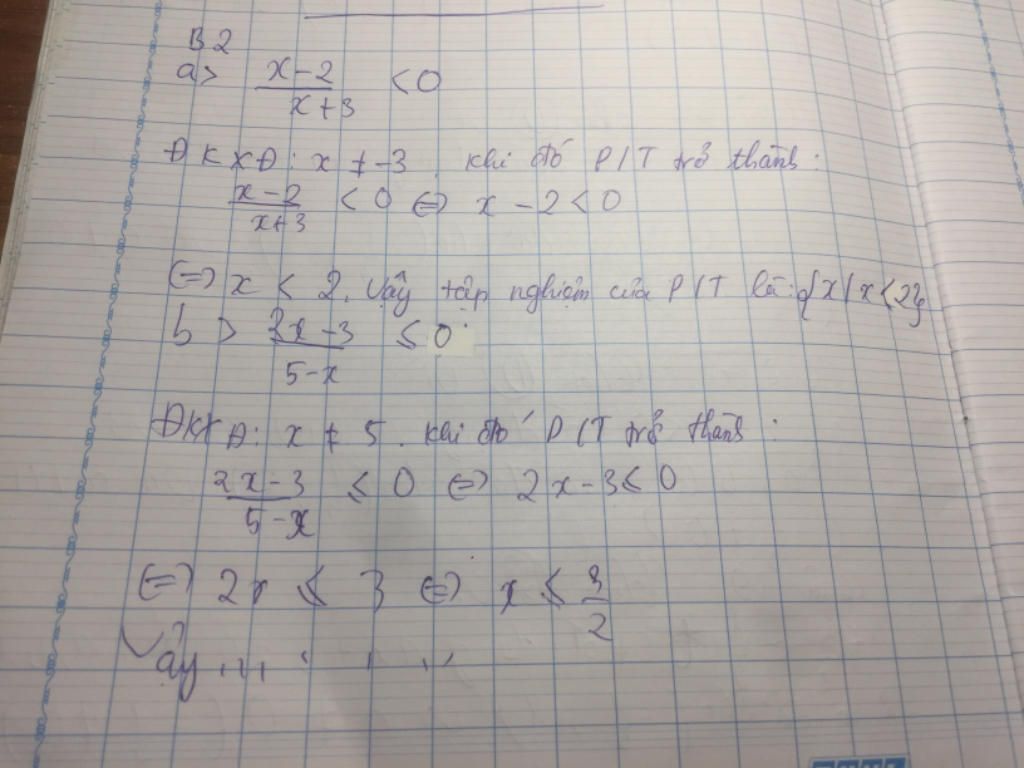 B2
a> x-2 / x+3 < 0
ĐKXĐ: x ≠ -3. Khi đó P/T trở thành:
x-2 / x+3 < 0 ⇔ x - 2 < 0
⇔ x < 2. Vậy tập nghiệm của P/T là: {x/x<2}
b> 2x-3 / 5-x ≤ 0
ĐKXĐ: x ≠ 5. Khi đó P/T trở thành:
2x-3 / 5-x ≤ 0 ⇔ 2x-3 ≤ 0
⇔ 2x ≤ 3 ⇔ x ≤ 3/2
Vậy